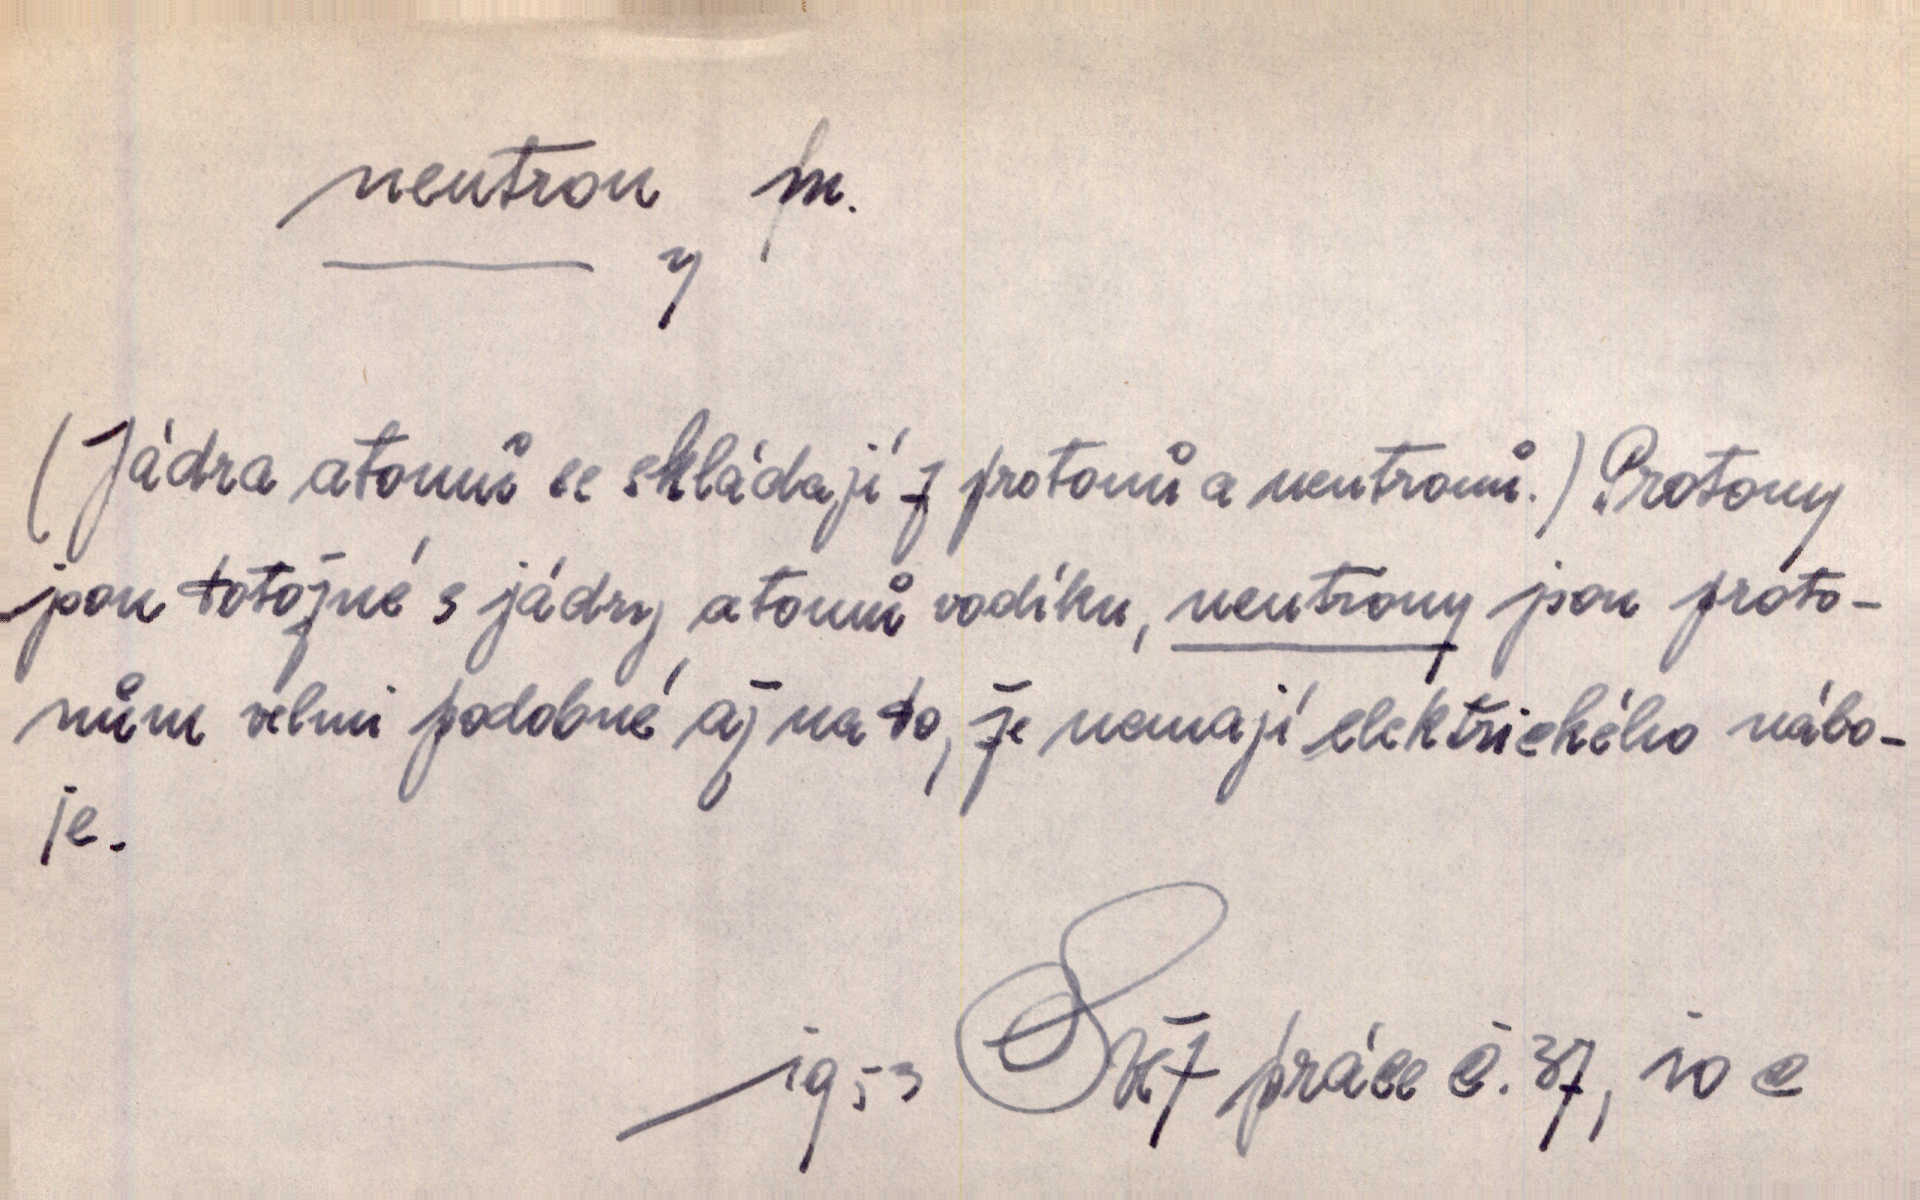 neutron m.
y
(Jádra atomů se skládají z protonů a neutronů.) Protony
jsou totožné s jádry atomů vodíku, neutrony jsou proto-
nům velmi podobné až na to, že nemají elektrického nábo-
je.
1953 práce č. 37, 10 c